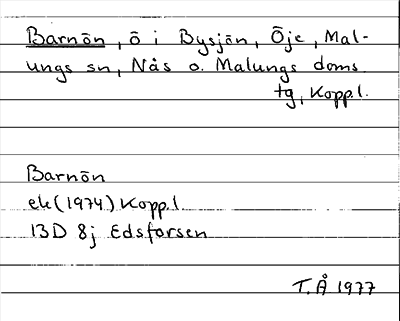 Barnön, ö i Bysjön, Öje, Mal-
ungs sn, Nås o. Malungs doms
tg, Kopp.l.
Barnön
ek(1974) Kopp.l.
13D 8j Edsforsen
T.Å 1977